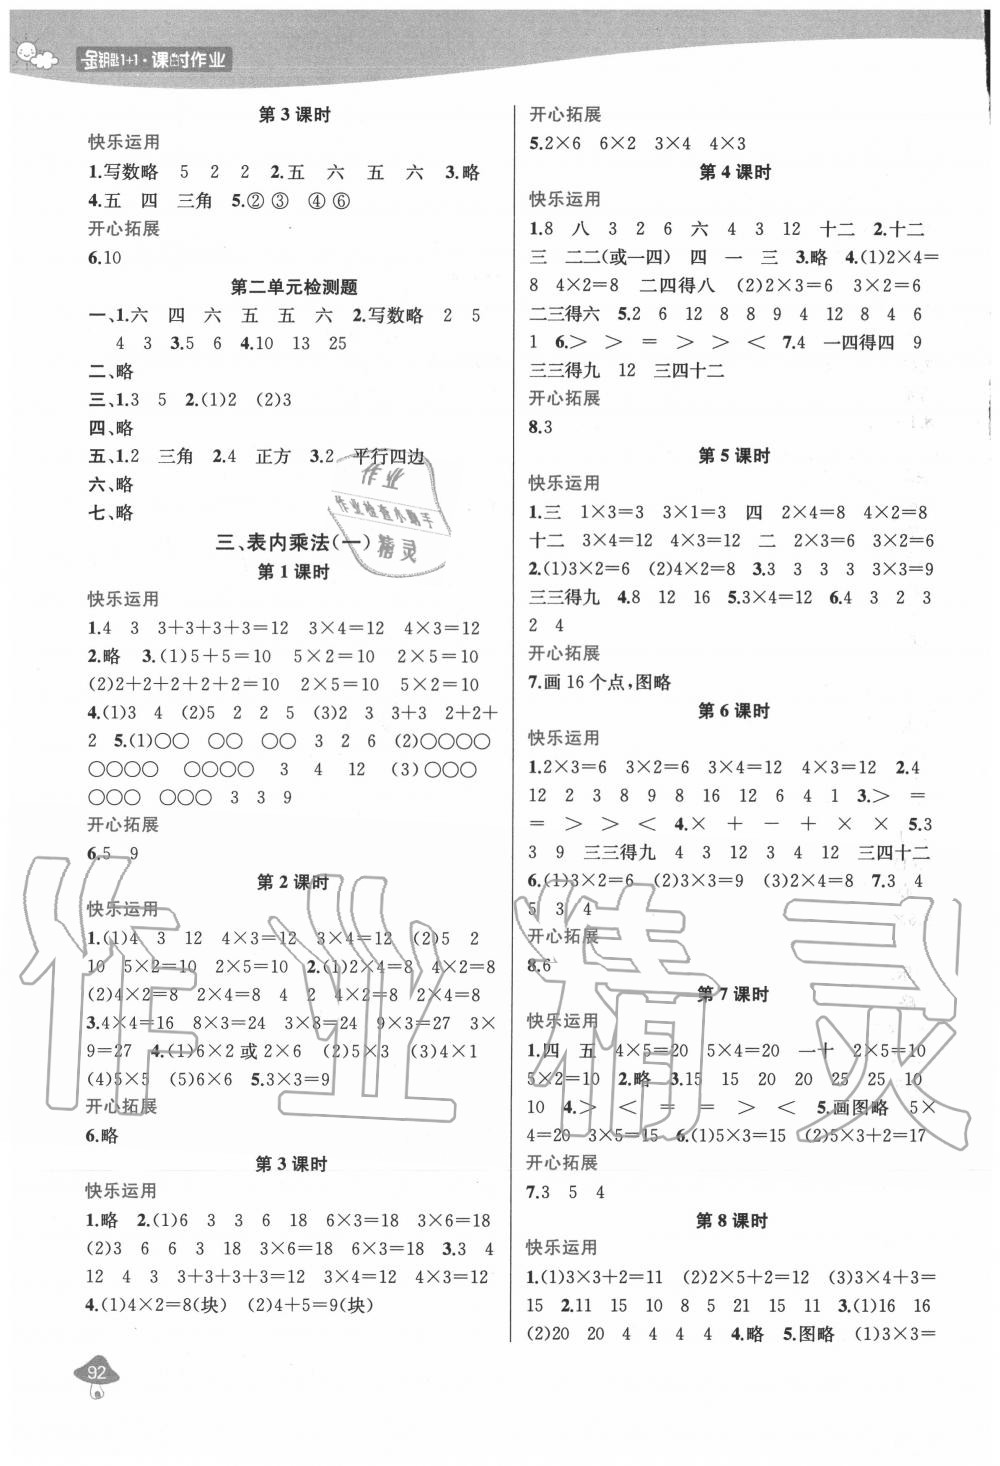 金钥匙1+1·课时作业
第3课时
快乐运用
1.写数略 5 2 2 2.五 六 五 六 3.略
4.五 四 三角 5.②③ ④⑥
开心拓展
6.10
第二单元检测题
一、1.六 四 六 五 五 六 2.写数略 2 5
4 3 3.5 6 4.10 13 25
二、略
三、1.3 5 2.(1)2 (2)3
四、略
五、1.2 三角 2.4 正方 3.2 平行四边
六、略
七、略
三、表内乘法(一)
第1课时
快乐运用
1.4 3 3+3+3+3=12 3×4=12 4×3=12
2.略 3.(1)5+5=10 5×2=10 2×5=10
(2)2+2+2+2+2=10 2×5=10 5×2=10
4.(1)3 4 (2)5 2 2 5 (3)2 3 3+3 2+2+
2 5.(1)○○ ○○ ○○ 3 2 6 (2)○○○○
○○○○ ○○○○ 3 4 12 (3)○○○
○○○ ○○○ 3 3 9
开心拓展
6.5 9
第2课时
快乐运用
1.(1)4 3 12 4×3=12 3×4=12 (2)5 2
10 5×2=10 2×5=10 2.(1)2×4=8 4×2=8
(2)4×2=8 2×4=8 4 2 4×2=8 2×4=8
3.4×4=16 8×3=24 3×8=24 9×3=27 3×
9=27 4.(1)6×2或2×6 (2)5×3 (3)4×1
(4)5×5 (5)6×6 5.3×3=9
开心拓展
6.略
第3课时
快乐运用
1.略 2.(1)6 3 3 6 18 6×3=18 3×6=18
(2)3 6 6 3 18 3×6=18 6×3=18 3.3 4
12 4 3 3+3+3+3=12 3×4=12 4×3=12
4.(1)4×2=8(块) (2)4+5=9(块)
92
开心拓展
5.2×6 6×2 3×4 4×3
第4课时
快乐运用
1.8 八 3 2 6 六 4 3 12 十二 2.十二
三 二二(或一四) 四 一 三 3.略 4.(1)2×4=
8 4×2=8 二四得八 (2)2×3=6 3×2=6
二三得六 5.2 6 12 8 8 9 4 12 8 4 6
1 6.> > = > > < 7.4 一四得四 9
三三得九 12 三四十二
开心拓展
8.3
第5课时
快乐运用
1.三 1×3=3 3×1=3 四 2×4=8 4×2=8
十二 3×4=12 4×3=12 二 2×3=6 3×2=6
2.(1)3×2=6 (2)4×2=8 3.3 3 3 3 3×3=9
三三得九 4.8 12 16 5.3×4=12 6.4 3 2 3
2 4
开心拓展
7.画16个点,图略
第6课时
快乐运用
1.2×3=6 3×2=6 3×4=12 4×3=12 2.4
12 2 3 8 9 8 16 12 6 4 1 3.> =
= > > < 4.× + - + × × 5.3
3 9 三三得九 4 3 12 3 4 12 三四十二
6.(1)3×2=6 (2)3×3=9 (3)2×4=8 7.3 4
5 3 4
开心拓展
8.6
第7课时
快乐运用
1.四 五 4×5=20 5×4=20 一十 2×5=10
5×2=10 2.略 3.15 15 20 20 25 25 10
10 4.> < = = > < 5.画图略 5×
4=20 3×5=15 6.(1)5×3=15 (2)5×3+2=17
开心拓展
7.3 5 4
第8课时
快乐运用
1.(1)3×3+2=11 (2)2×5+2=12 (3)3×4+3=
15 2.11 15 10 8 5 21 15 11 3.(1)16 16
(2)20 20 4 4 4 4 4.略 5.图略 (1)3×3=
作业
作业检查小助手
精灵
作业精灵